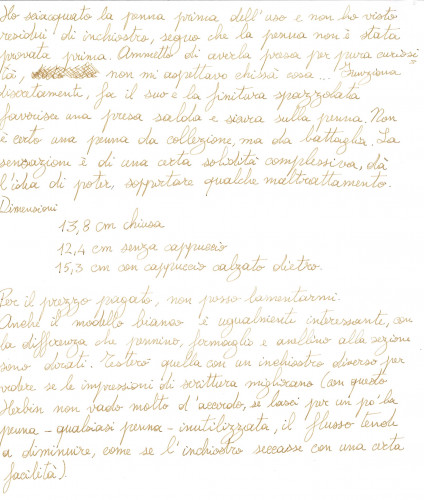 Ho sciacquato la penna prima dell'uso e non ho visto
residui di inchiostro, segno che la penna non è stata
provata prima. Ammetto di averla presa per pura curiosi
tà, non mi aspettavo chissà cosa... Funziona
discretamente, fa il suo e la finitura spazzolata
favorisce una presa salda e sicura sulla penna. Non
è certo una penna da collezione, ma da battaglia. La
sensazione è di una certa solidità complessiva, dà
l'idea di poter sopportare qualche maltrattamento.
Dimensioni
13,8 cm chiusa
12,4 cm senza cappuccio
15,3 cm con cappuccio calzato dietro.
Per il prezzo pagato, non posso lamentarmi.
Anche il modello bianco è ugualmente interessante, con
la differenza che pennino, fermaglio e anellino alla sezione
sono dorati. Testerò quella con un inchiostro diverso per
vedere se le impressioni di scrittura migliorano (con questo
Habin non vado molto d'accordo, se lasci per un po' la
penna - qualsiasi penna - inutilizzata, il flusso tende
a diminuire, come se l'inchiostro seccasse con una certa
facilità).